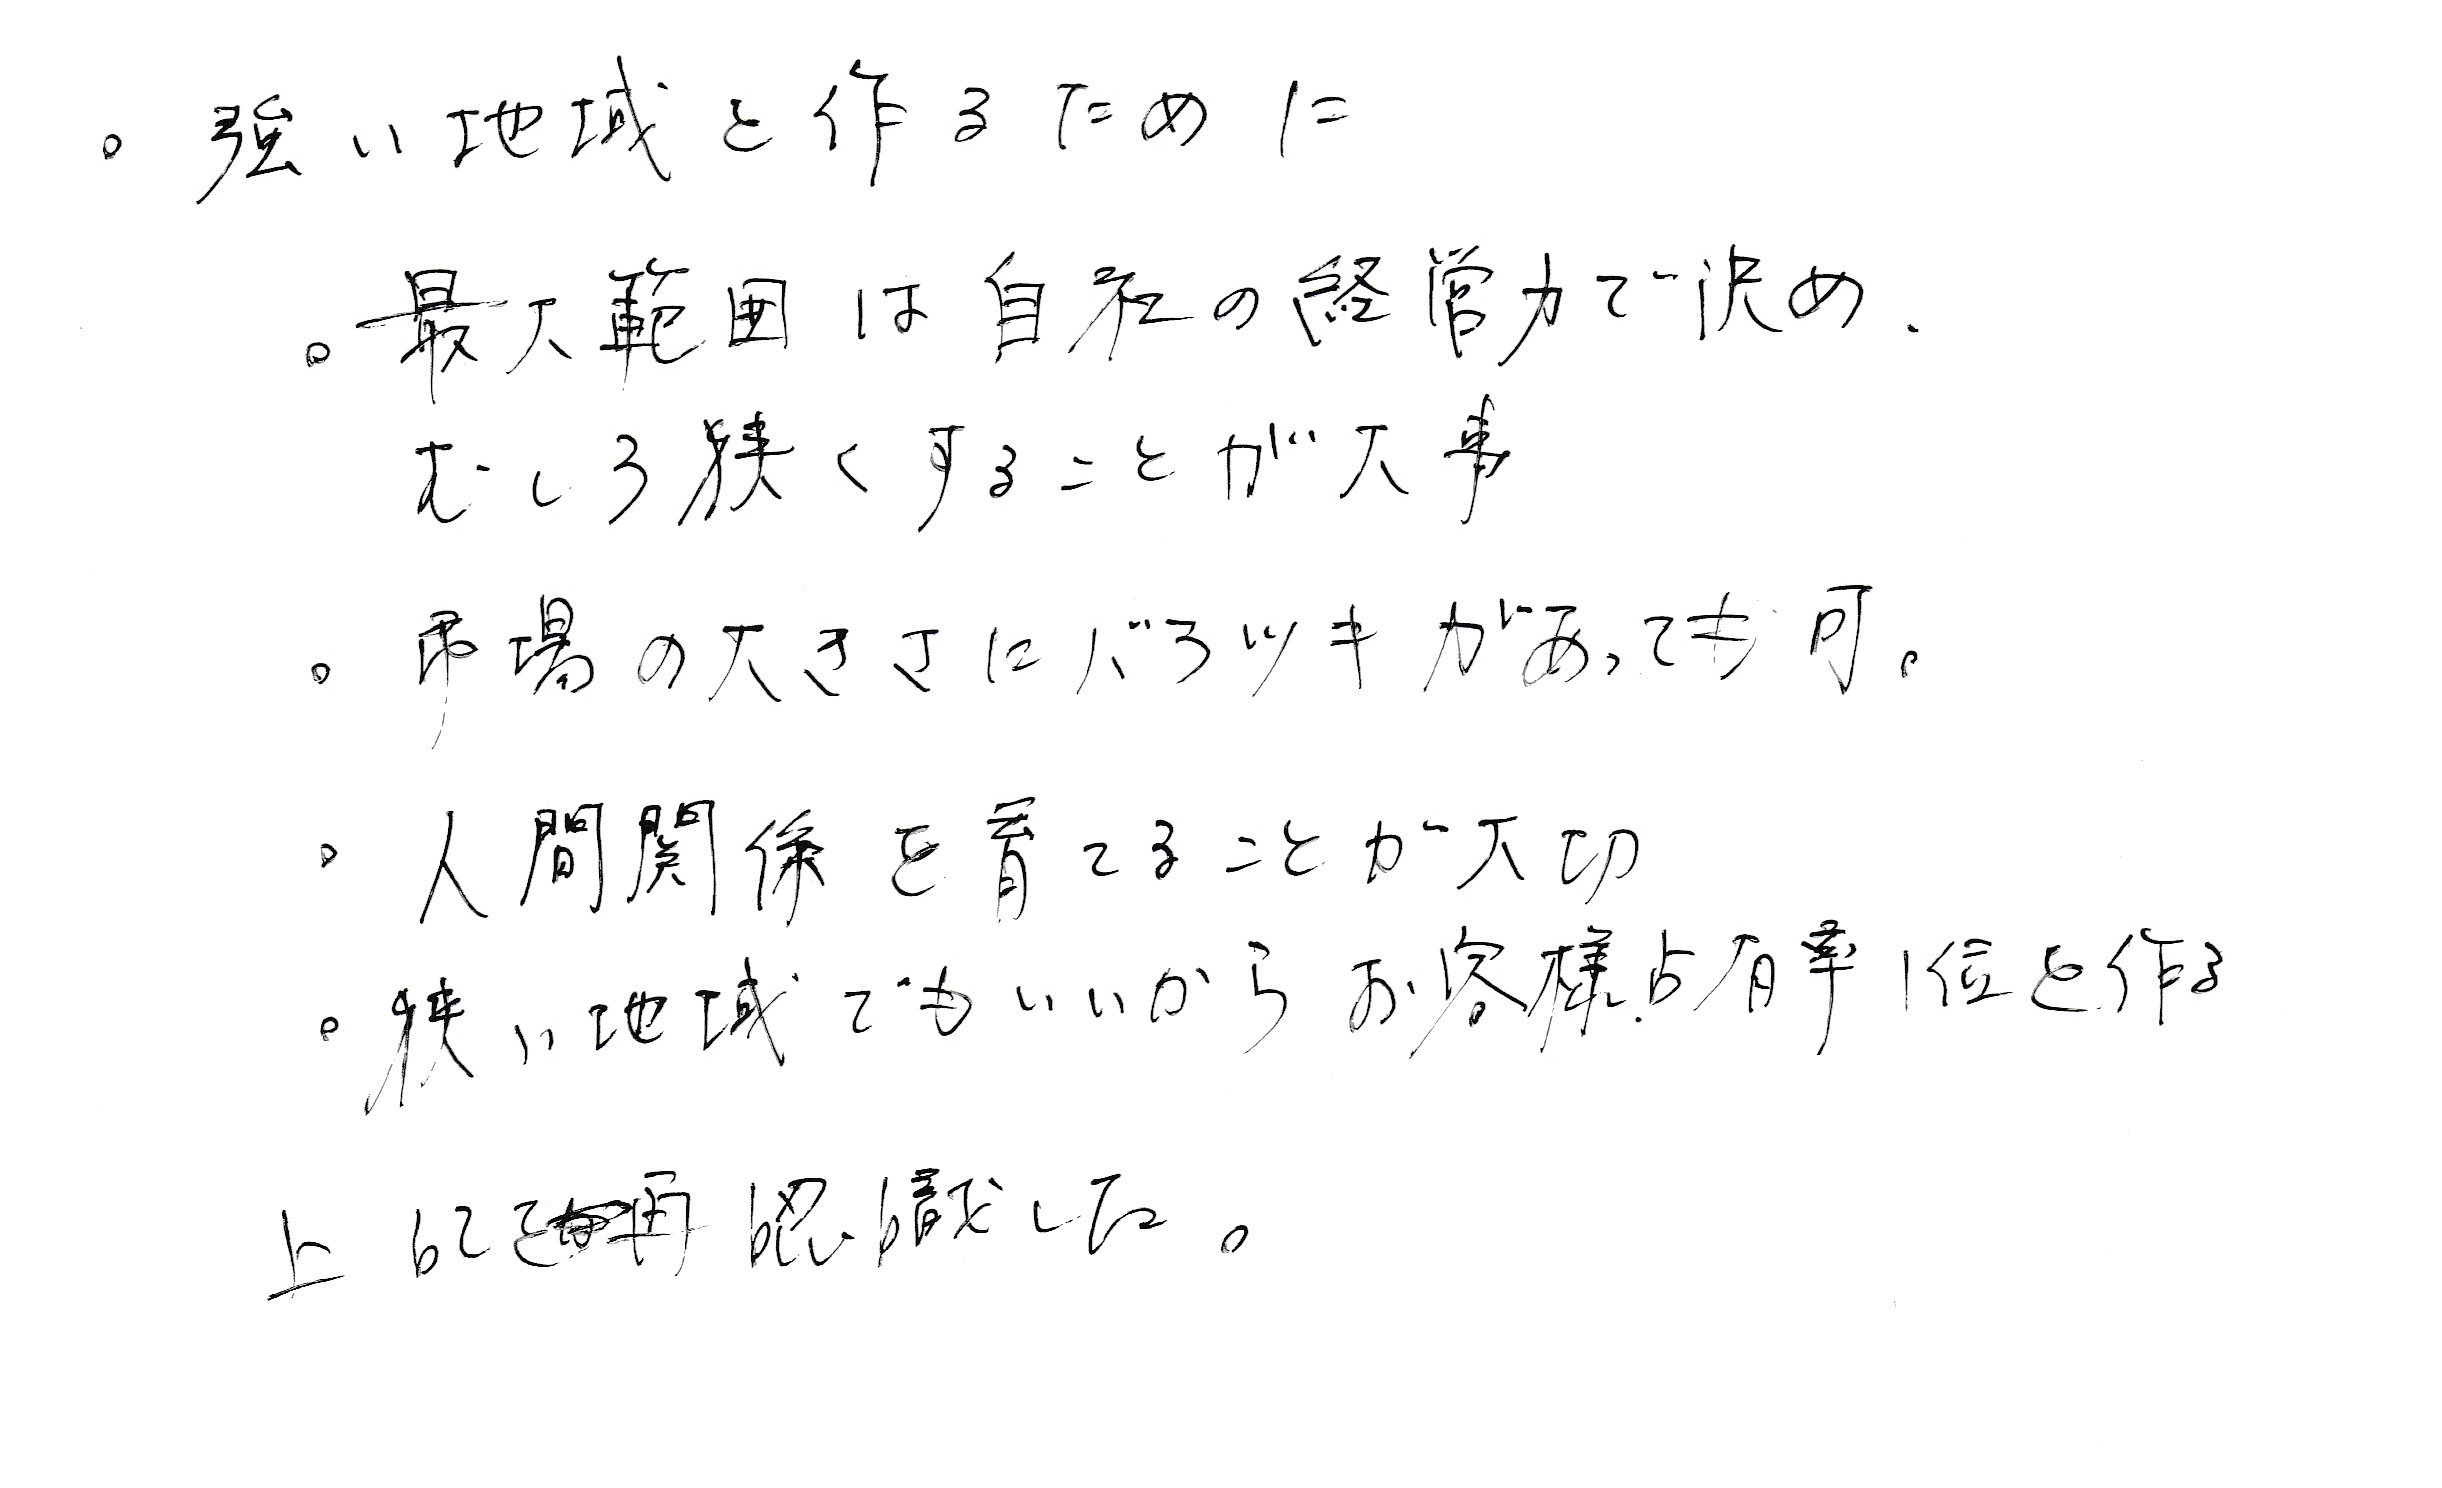 。強い地域を作るために
。最大範囲は自社の経営力で決め、
むしろ狭くすることが大事
。市場の大きさにバラツキがあっても可。
。人間関係を育てることが大切
。狭い地域でもいいからお客様占有率1位を作る
上記を再認識した。